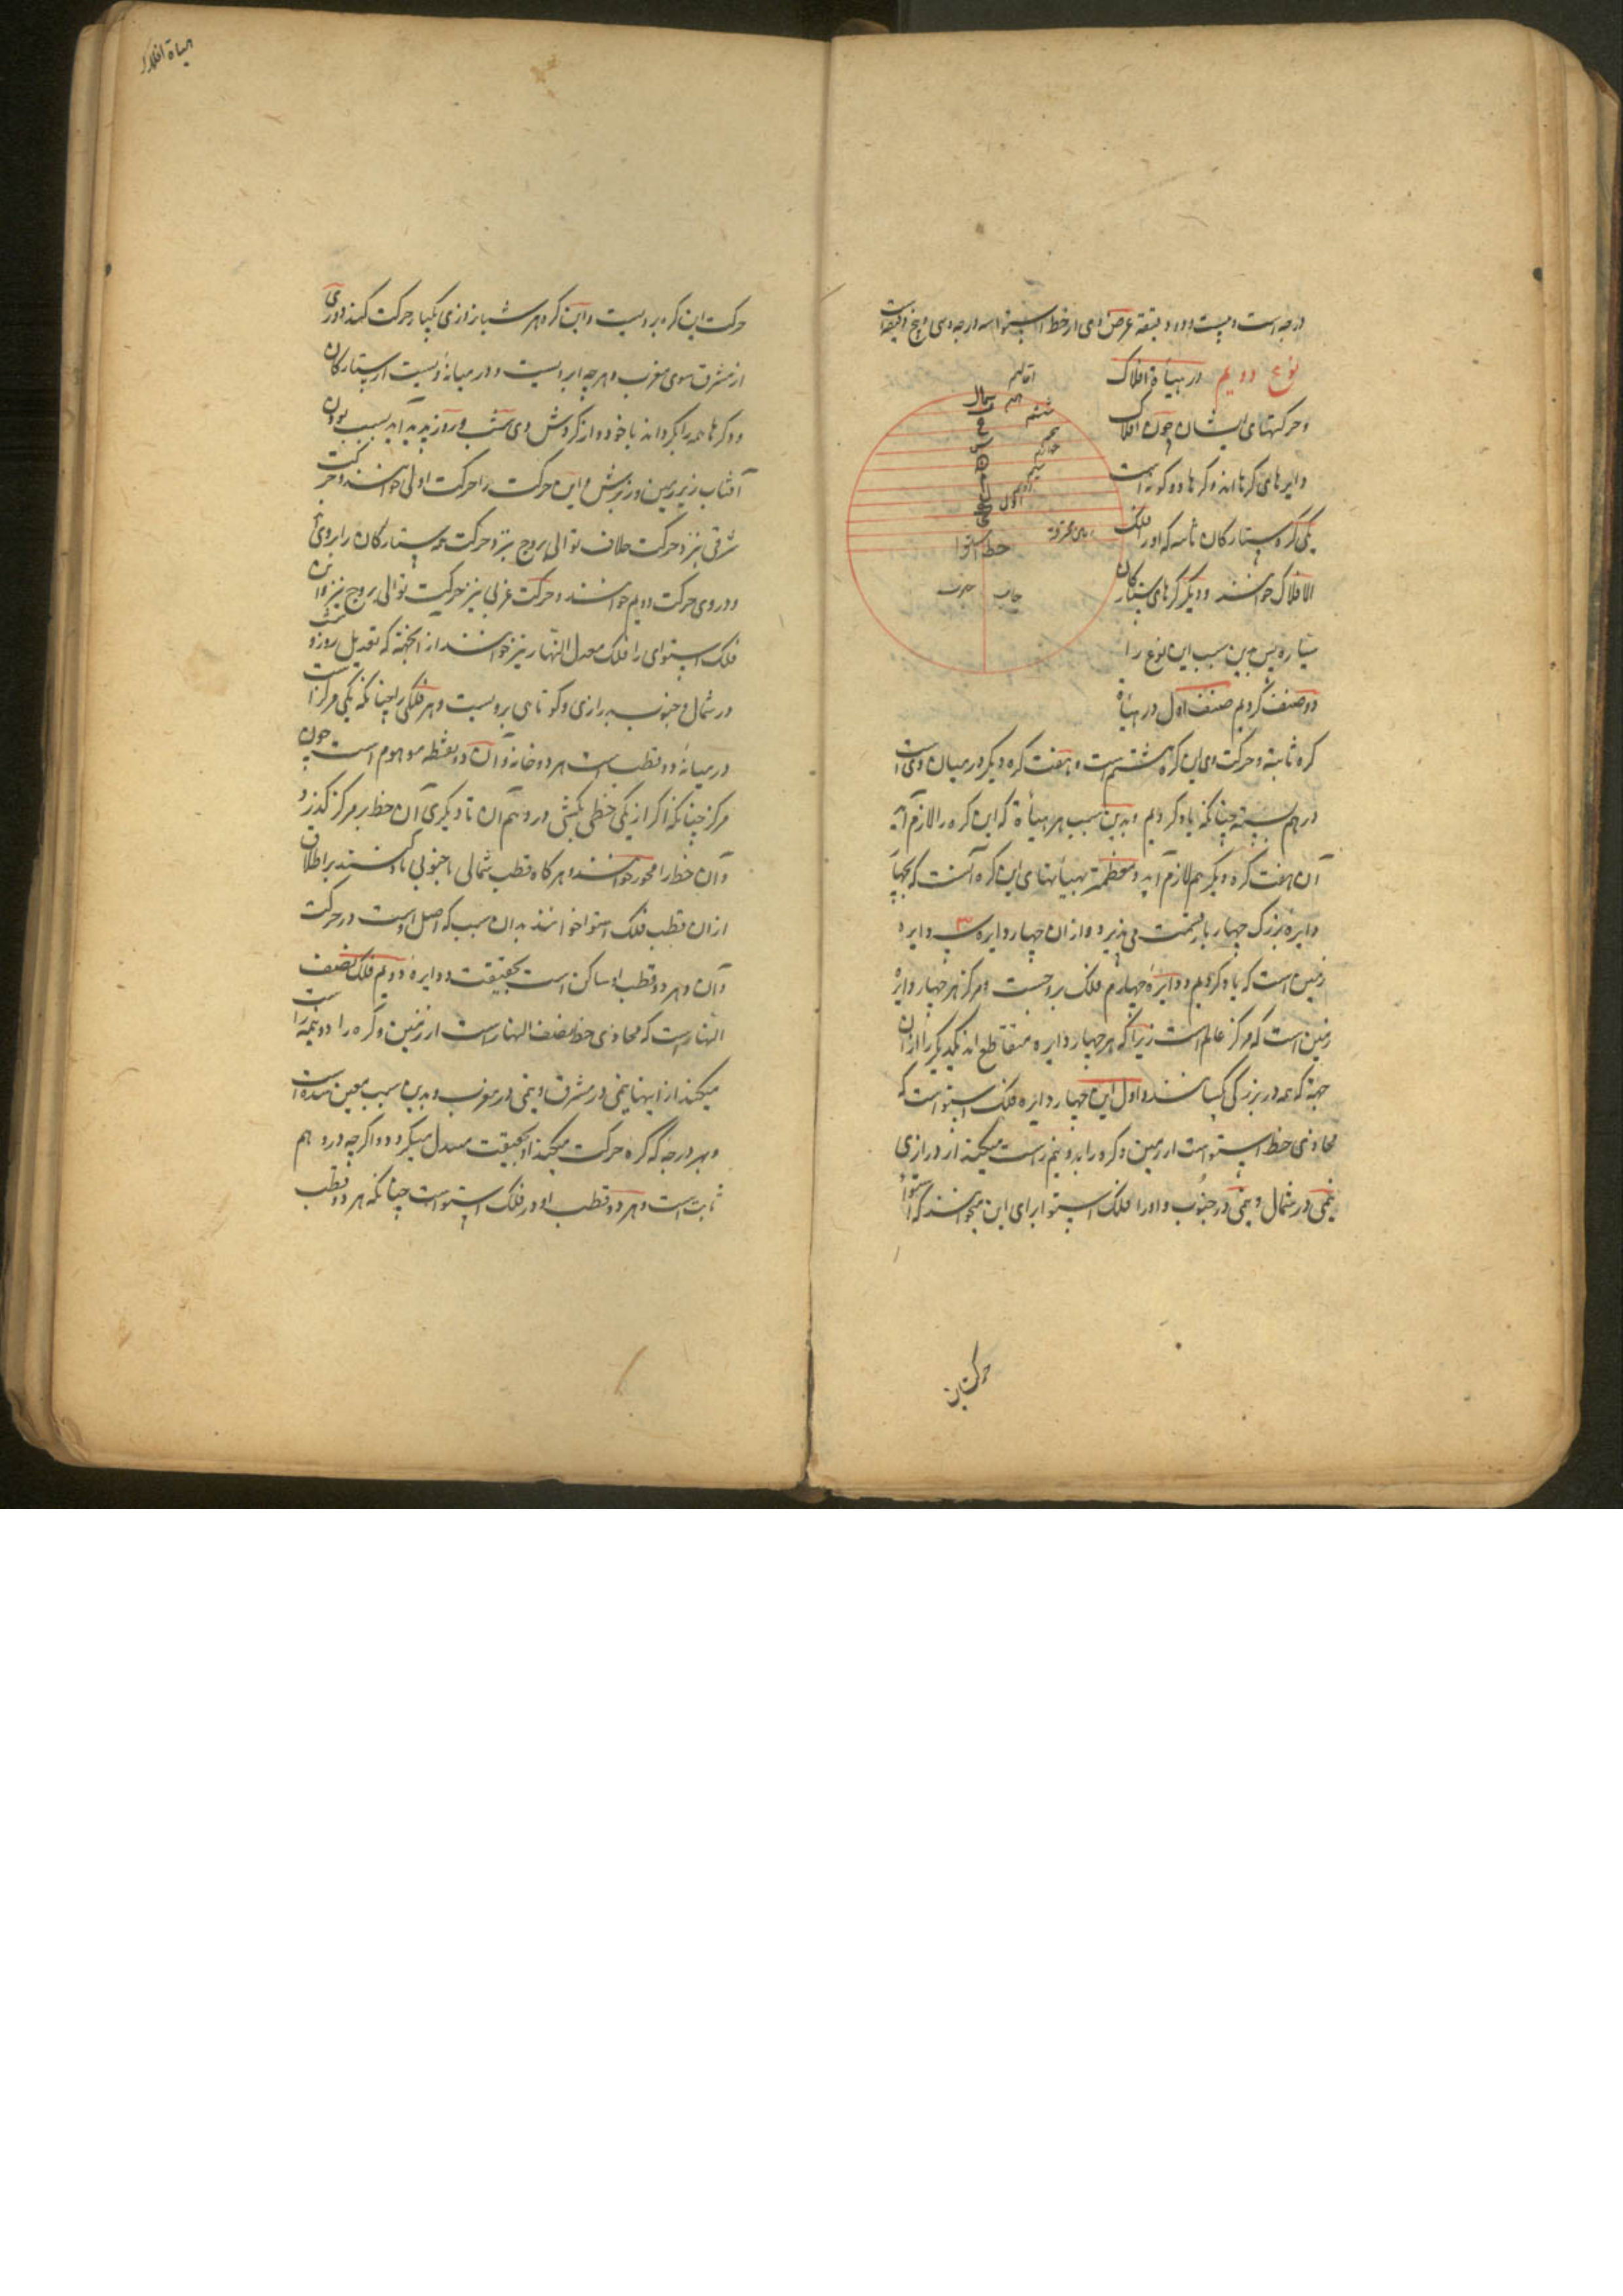 درجه است و بیست و دو دقیقه عرض وی از خط استوا سه درجه و سی و پنج دقیقه است
نوع دویم در هیأة افلاک
و حرکتهای ایشان چون افلاک
دایرهای کرها اند و کرها دو کونه است
یکی کره ستارکان ثابته که او را فلک
الافلاک خوانند و دیکر کرهای ستارکان
سیاره پس بدین سبب این نوع را
دو صنف کردیم صنف اول در هیأة
اقالیم
هفتم
ششم
پنجم
چهارم
سیم
دویم
اول
شمال
خط استوا
جانب جنوب
کره ثابته و حرکت وی این کره هشتم است و هفت کره دیکر در میان وی است
درهم بسته چنانکه یاد کردیم و بدین سبب هر هیأة که این کره را لازم آید
آن هفت کره دیکر هم لازم آید و معظمترین هیأتهای این کره آنست که بچهار
دایره بزرک چهار بار قسمت می پذیرد و از آن چهار دایره سه دایره
زمین است که یاد کردیم و دایره چهارم فلک بروجست و مرکز هر چهار دایره
زمین است که مرکز عالم است زیرا که هر چهار دایره متقاطع اند یکدیکر را از آن
جهة که همه در بزرکی یکسانند و اول این چهار دایره فلک استواست که
محاذی خط استواست از زمین و کره را بدو نیم راست میکند از درازی
نیمی در شمال و نیمی در جنوب و او را فلک استوا برای این میخوانند که استوا
حرکت این
هیأة افلاک
حرکت این کره بر ویست و این کره هر شبانروزی یکبار حرکت کند دوری
از مشرق سوی مغرب و هرچه بر ویست و در میانه ویست از ستارکان
و کرها همه را بکرداند با خود و از کردش وی شب و روز پدید آید بسبب بودن
آفتاب زیر زمین و زبرش و این حرکت را حرکت اولی خوانند و حرکت
شرقی نیز و حرکت خلاف توالی بروج نیز و حرکت همه ستارکان را بروی
و در وی حرکت دویم خوانند و حرکت غربی نیز و حرکت توالی بروج نیز و این
فلک استوای را فلک معدل النهار نیز خوانند از آنجهة که تعدیل روز و شب
در شمال و جنوب بدرازی و کوتاهی بر ویست و هر فلکی را چنانکه یکی مرکز است
در میانه دو قطب است هر دو خانه و آن دو نقطه موهوم است چون
مرکز چنانکه اکر از یکی خطی بکشی در وهم آن تا دیکری آن خط بر مرکز کذرد
و آن خط را محور خوانند و هر کاه قطب شمالی یا جنوبی یاد کنند بر اطلاق
از آن قطب فلک استوا خواهند بدان سبب که اصل اوست در حرکت
و آن هر دو قطب او ساکن است بحقیقت و دایره دویم فلک نصف
النهار است که محاذی خط نصف النهار است از زمین و کره را دو نیمه راست
میکند از پهنا نیمی در مشرق و نیمی در مغرب و بدین سبب معین نشده است
و بهر درجه که کره حرکت میکند او بحقیقت مبدل میکردد و اکرچه در وهم
ثابت است و هر دو قطب او در فلک استواست چنانکه هر دو قطب